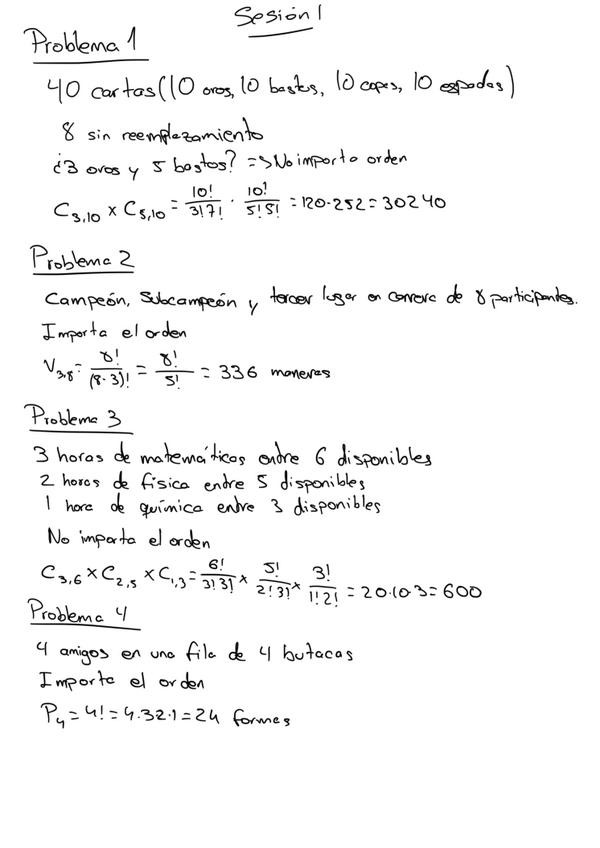 Sesión 1
Problema 1
40 cartas (10 oros, 10 bastos, 10 copas, 10 espadas)
8 sin reemplazamiento
¿3 oros y 5 bastos? => No importa orden
C3,10 x C5,10 = 10!/3!7! · 10!/5!5! = 120·252 = 30240
Problema 2
Campeón, Subcampeón y tercer lugar en carrera de 8 participantes.
Importa el orden
V3,8 = 8!/(8-3)! = 8!/5! = 336 maneras
Problema 3
3 horas de matemáticas entre 6 disponibles
2 horas de física entre 5 disponibles
1 hora de química entre 3 disponibles
No importa el orden
C3,6 x C2,5 x C1,3 = 6!/3!3! x 5!/2!3! x 3!/1!2! = 20·10·3 = 600
Problema 4
4 amigos en una fila de 4 butacas
Importa el orden
P4 = 4! = 4·3·2·1 = 24 formas